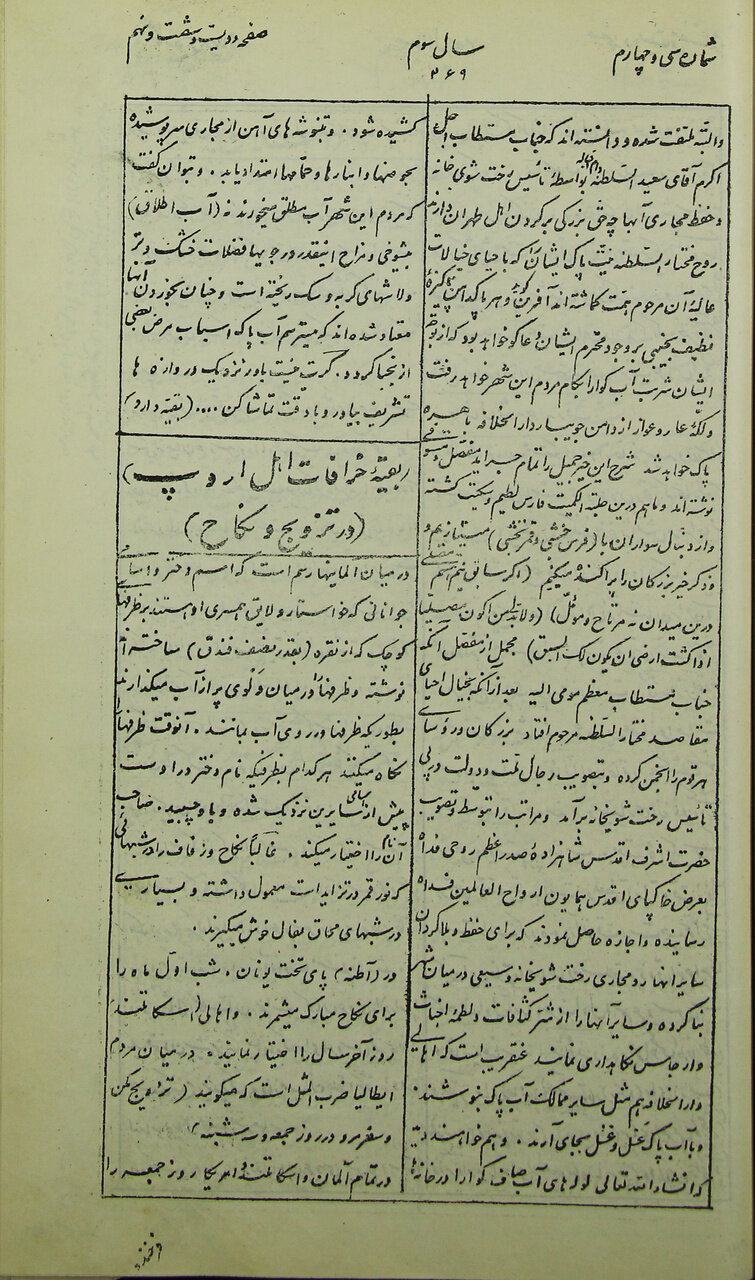 شماره سی و چهارم
سال سوم
۲۶۹
صفحه دویست و شصت و نهم
والبته ملتفت شده و دانسته اند که جناب مستطاب اجل
اکرم آقای سعید السلطنه دام اقباله بواسطهٔ تأسیس رخت شوی خانه
و حفظ مجاری آبها چه حق بزرگی برگردن اهل طهران دارند
روح مختار السلطنه نیت پاک ایشان که با حیای خیالات
عالیهٔ آن مرحوم همت گماشته اند آفرین گو و هر پاکدامن پاکیزهٔ
نظیف بر وجود محترم ایشان دعاگو خواهد بود که از توجه
ایشان شربت آب گوارا بکام مردم این شهر خواهد رفت
ولکهٔ عار و عوار از دامن جویبار دارالخلافه باهره
پاک خواهد شد شرح این خبر جمیل را تمام جراید مفصل
نوشته اند و ما هم درین حلبه الکمیت فارس لطیم و سکیت گشته
و از دنبال سواران با (فرس خشبی و قمر نخشبی)
و ذکر خیر بزرگان را پراکنده میکنیم (اگر سابق نیم هم
درین میدان نه مرتاح و مؤمل) (ولابد لی من ان اکون مصلیا
اذا کنت ارضی ان یکون لک السبق) مجمل از مفصل آنکه
جناب مستطاب معظم مومی الیه بعد از آنکه بخیال احیای
مقاصد مختار السلطنه مرحوم افتاد بزرگان و رؤسای
هر قوم را انجمن کرده و بتصویب رجال ملت و دولت در پی
تأسیس رخت شویخانه برآمد و مراتب را بتوسط و تصویب
حضرت اشرف اقدس شاهزاده صدراعظم روحی فداه
بعرض خاکپای اقدس همایون ارواح العالمین فداه
رسانیده و اجازه حاصل نمودند که برای حفظ
سایر انهار و مجاری رخت شویخانه وسیعی در میان شهر
بنا کرده و سایر آبها را از شر کثافات و لطمهٔ اخباث
و ارجاس نگاهداری نمایند عنقریب است که اهالی
دارالخلافه هم مثل سایر ممالک آب پاک بنوشند
و با آب پاک غسل و غسل بجای آرند. و هم خواهند دید
که انشاء الله تعالی لوله های آب صاف گوارا در خانه ها
کشیده شود. و تنبوشه های آهن از مجاری سرپوشیده
بحوضها و انبارها و حمامها امتداد یابد. و نتوان گفت
که مردم این شهر آب مطلق میخورند نه (آب اطلاق)
بشوخی و مزاح اینقدر در جویها فضلات خشک و تر
و لاشهای گربه و سگ ریخته است و چنان بخوردن آنها
معتاد شده اند که میترسم آب پاک اسباب مرض بعضی
از نجبا گردد. گرت نیست باور نزدیک دروازه ها
تشریف بیاور و با دقت تماشا کن .... (بقیه دارد)
(بقیهٔ خرافات اهل اروپ)
(در تزویج و نکاح)
در میان المانیها رسم است که اسم دختر و اسامی
جوانانی که خواستار و لایق همسری او هستند بر ظرفهای
کوچک که از نقره (بقدر نصف فندق) ساخته اند
نوشته و ظرفها را در میان دلوی پر از آب میگذارند
بطوریکه ظرفها در روی آب بمانند. آنوقت ظرفها را
نگاه میکنند هر کدام بظرفیکه نام دختر در اوست
پیش از سایرین نزدیک شده و باو چسبید. صاحب
آن نام را اختیار میکند. غالباً نکاح و زفاف را در شبهائی
که نور قمر در تزاید است معمول داشته و بسیاری
در شبهای محاق بفال خوش میگیرند.
در (آطنه) پای تخت یونان. شب اول ماه را
برای نکاح مبارک میشمرند. و اهالی (اسکاتلند)
روز آخر سال را اختیار نمایند. در میان مردم
ایطالیا ضرب المثل است که میگویند (تزویج مکن
و سفر مرو در روز جمعه و سه شنبه)
در تمام آلمان و اسکاتلند و امریکا روز جمعه را